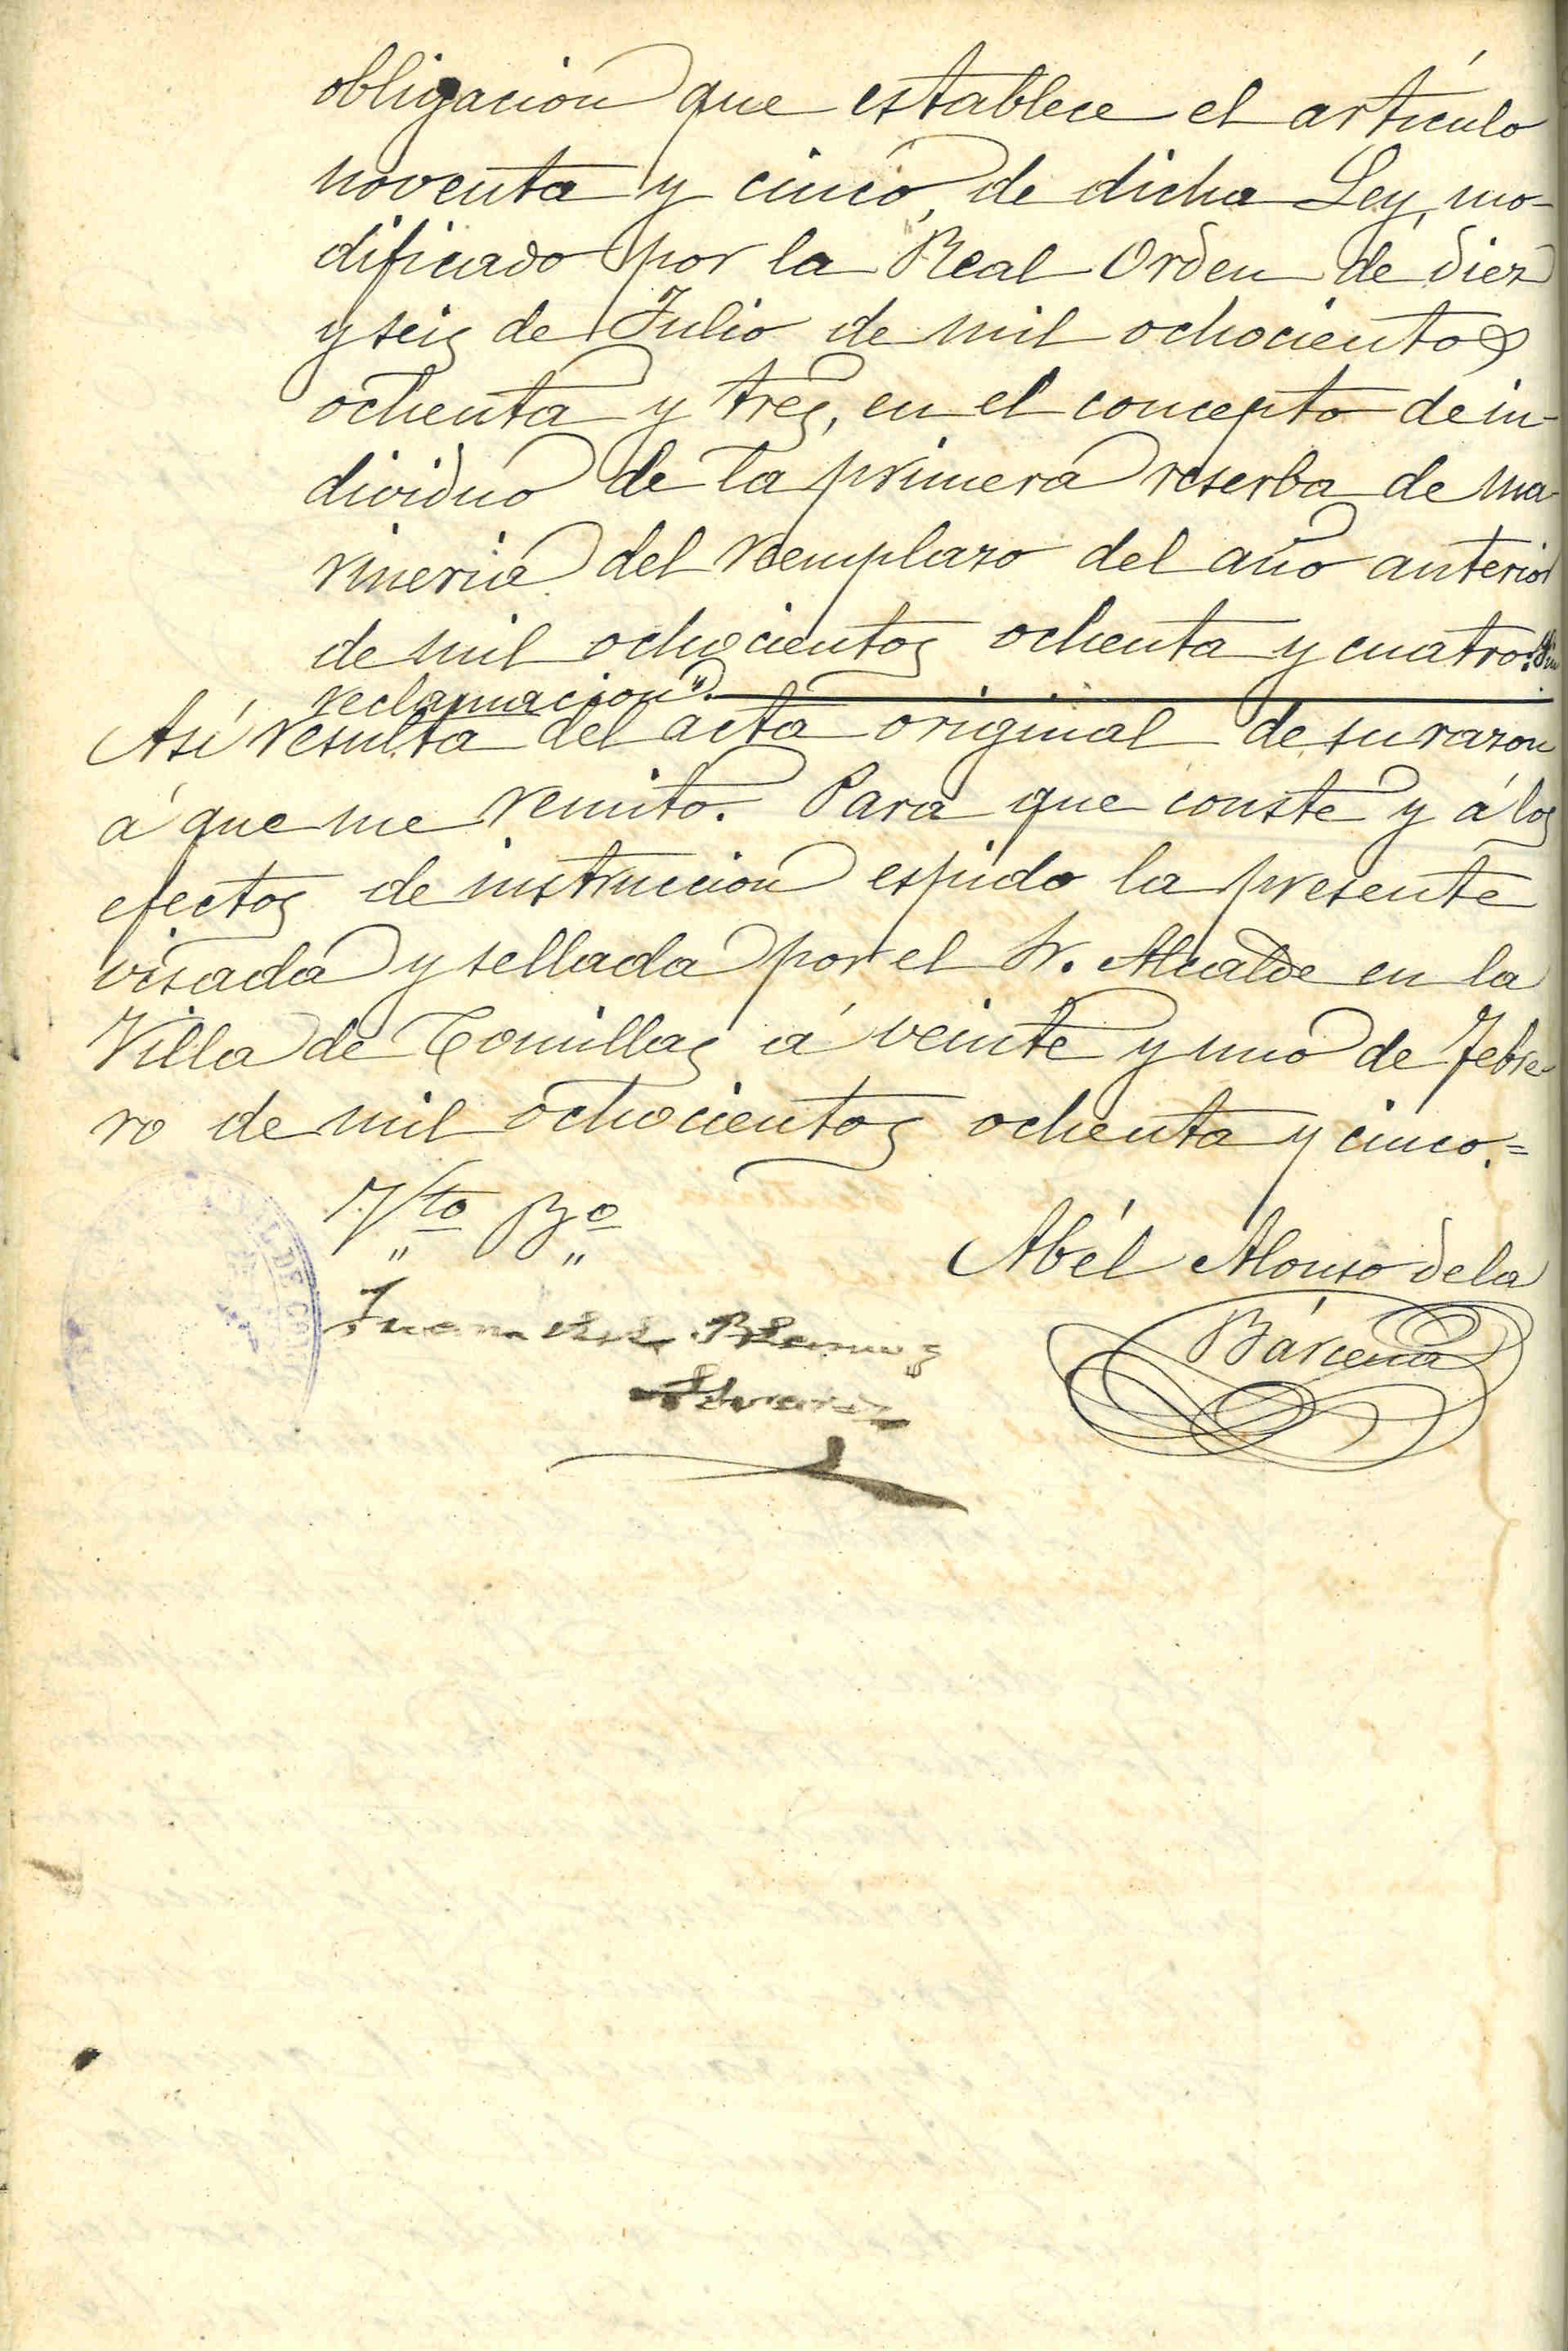 obligacion que establece el artículo
noventa y cinco, de dicha Ley, mo-
dificado por la Real Orden de diez
y seis de Julio de mil ochocientos
ochenta y tres, en el concepto de in-
dividuo de la primera reserba de ma-
rineria del reemplazo del año anterior
de mil ochocientos ochenta y cuatro: Sin
reclamacion".
Así resulta del acta original de su razon
á que me remito. Para que conste y á los
efectos de instruccion espido la presente
visada y sellada por el Sr. Alcalde en la
Villa de Comillas á veinte y uno de Febre-
ro de mil ochocientos ochenta y cinco.=
Vto Bo
Abél Alonso de la
Bárcena
Juan